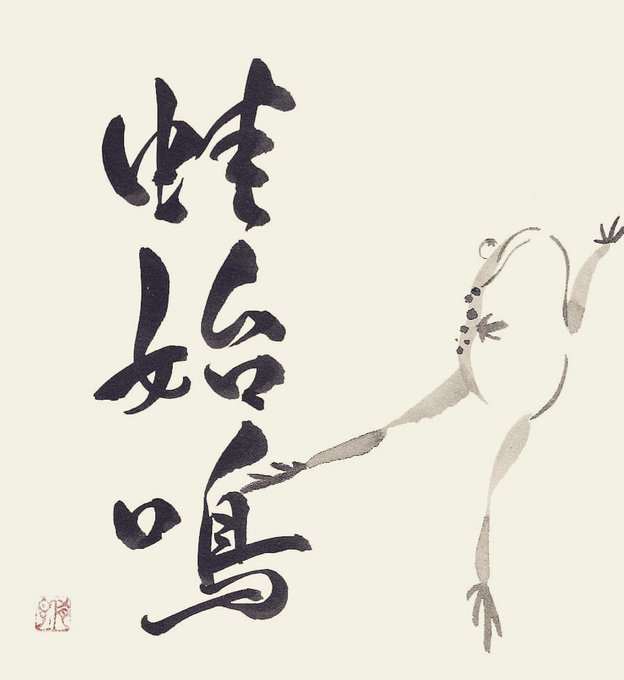 蛙始鳴